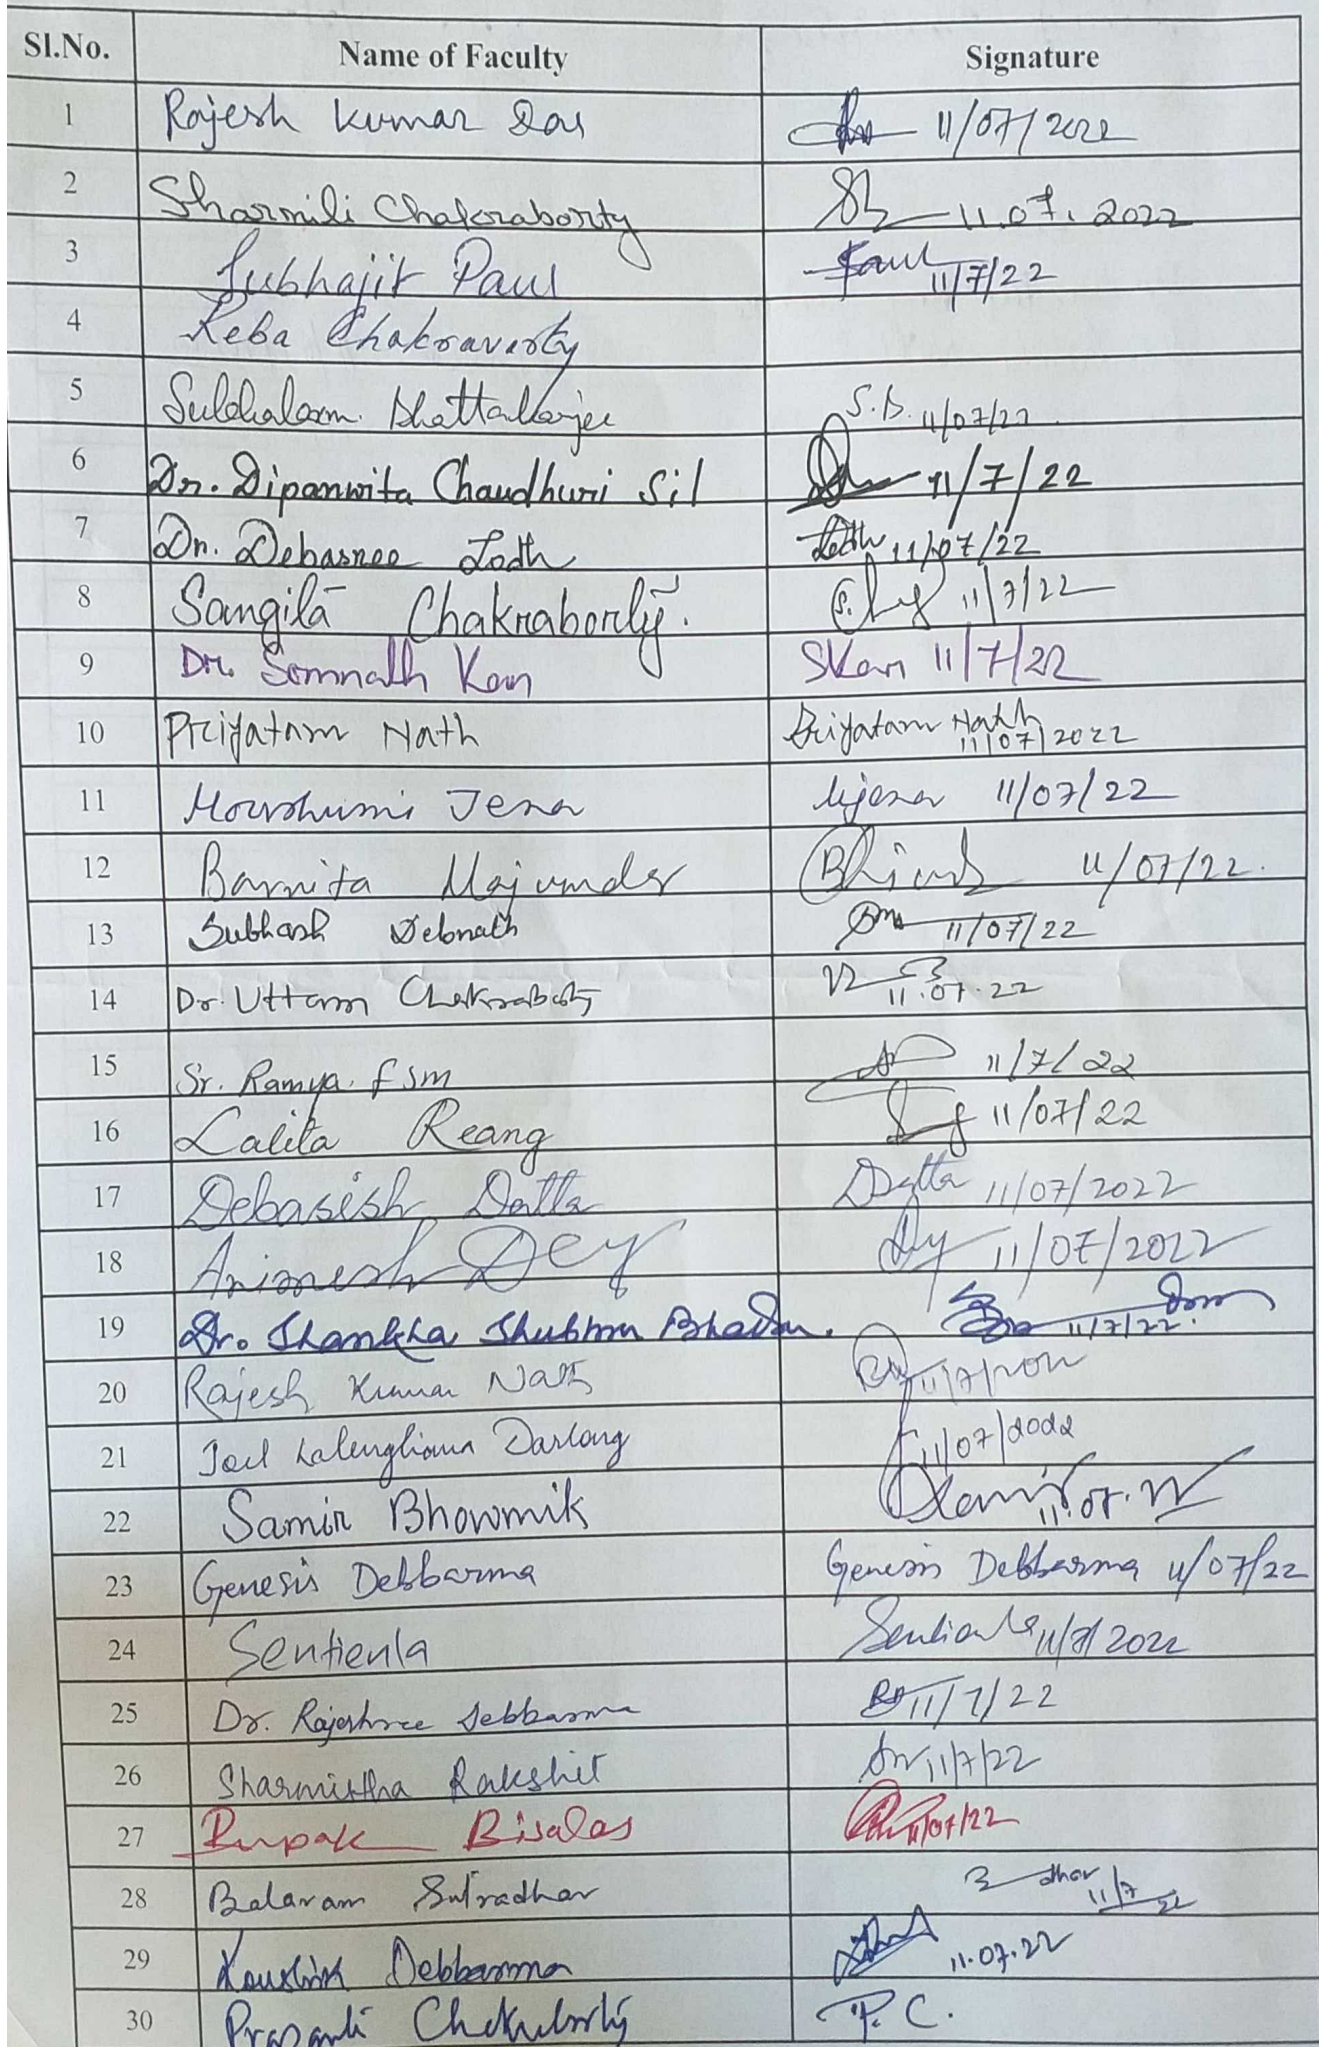 Sl.No. Name of Faculty Signature
1 Rajesh Kumar Das 11/07/2022
2 Sharmili Chakraborty 11.07.2022
3 Subhajit Paul Paul 11/7/22
4 Reba Chakravorty
5 Bhattacharjee S.B. 11/07/22
6 Dr. Dipanwita Chaudhuri Sil 11/7/22
7 Dr. Debasree Lodh Lodh 11/07/22
8 Sangita Chakraborty. 11/7/22
9 Dr. Somnath Kar SKar 11/7/22
10 Priyatam Nath Priyatam Nath 11/07/2022
11 Moushumi Jena Mjena 11/07/22
12 Barnita Majumder 11/07/22.
13 Subhash Debnath 11/07/22
14 Dr. Uttam Chakraborty 11.07.22
15 Sr. Ramya. fsm 11/7/22
16 Lalita Reang 11/07/22
17 Debasish Datta Datta 11/07/2022
18 Animesh Dey Dey 11/07/2022
19 Dr. Shankha Shubhra 11/7/22.
20 Rajesh Kumar Nath
21 Joel Darlong 11/07/2022
22 Samir Bhowmik Samir 11.07.22
23 Genesis Debbarma Genesis Debbarma 11/07/22
24 Sentienla Sentienla 11/7/2022
25 Dr. Rajeshree Debbarma 11/7/22
26 Sharmistha Rakshit 11/7/22
27 Rupak Biswas 11/07/22
28 Balaram Sutradhar dhar 11/7/22
29 Koushik Debbarma 11.07.22
30 Prasanti Chakraborty P.C.